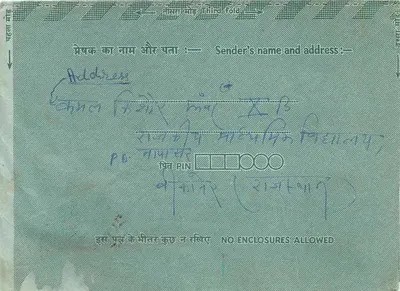 तीसरा मोड़ Third fold
पहला मोड़
प्रेषक का नाम और पता :— Sender's name and address :—
Address
कमल किशोर X बि
राजकीय माध्यमिक विद्यालय,
P.B. नापासर
पिन PIN
बीकानेर (राजस्थान)
इस पत्र के भीतर कुछ न रखिए NO ENCLOSURES ALLOWED